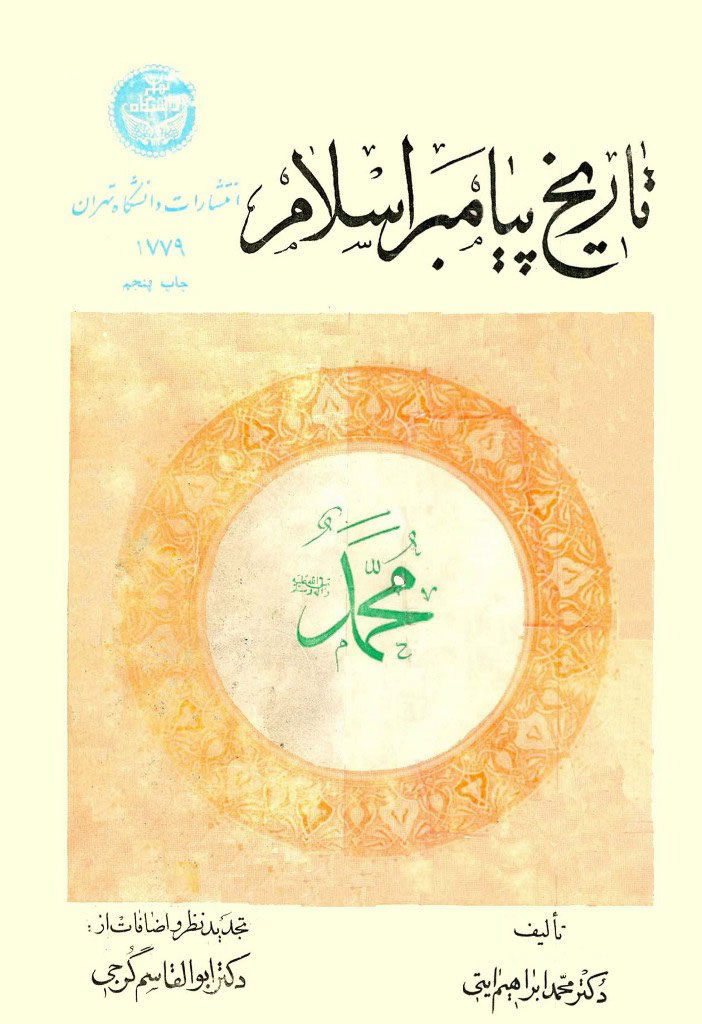 تاریخ پیامبر اسلام
انتشارات دانشگاه تهران
۱۷۷۹
چاپ پنجم
محمد
صلی الله علیه
و آله و سلم
تألیف
دکتر محمد ابراهیم آیتی
تجدید نظر و اضافات از:
دکتر ابوالقاسم گرجی